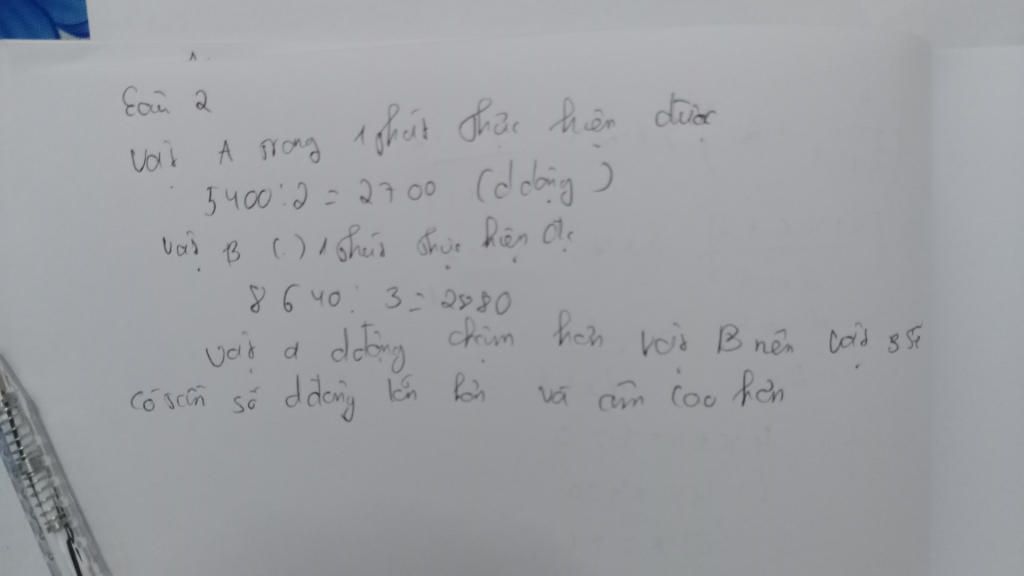 Câu 2
Vật A trong 1 phút thực hiện được
5400 : 2 = 2700 (d động)
Vật B (.) 1 phút thực hiện đc
8640 : 3 = 2880
Vật a d động chậm hơn vật B nên vật B sẽ
có tần số d động lớn hơn và âm cao hơn